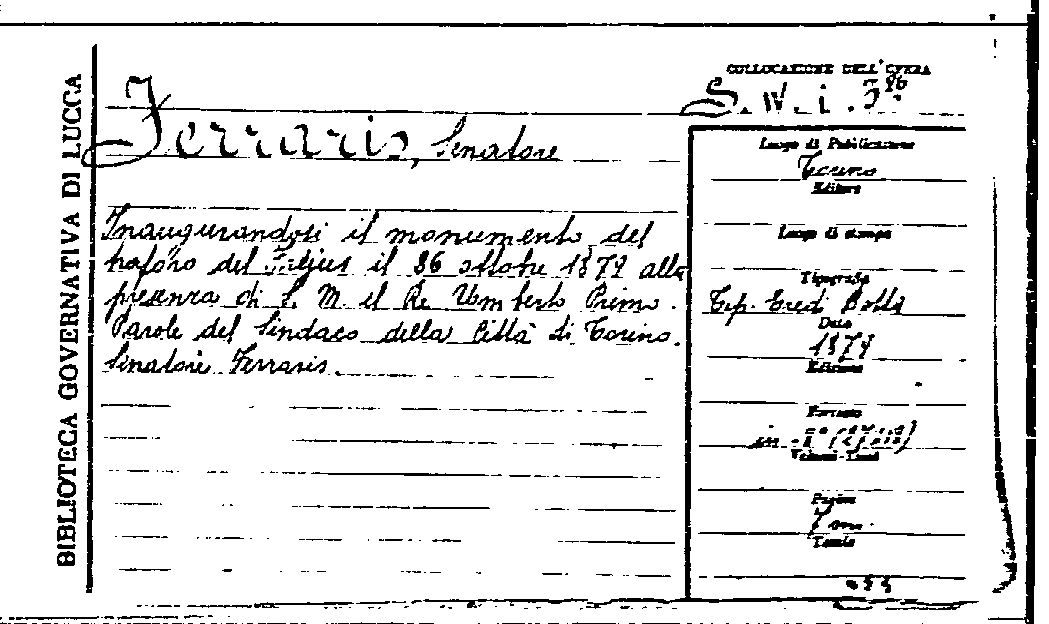 BIBLIOTECA GOVERNATIVA DI LUCCA
COLLOCAZIONE DELL'OPERA
S. W. i.
Ferraris, Senatore
Inaugurandosi il monumento del
traforo del Frejus il 26 ottobre 1879 alla
presenza di S. M. il Re Umberto Primo.
Parole del Sindaco della Città di Torino.
Senatore Ferraris.
Luogo di Pubblicazione
Torino
Editore
Luogo di stampa
Tipografia
Tip. Eredi Botta
Data
1879
Edizione
Formato
in
Volumi-Tomi
Pagine
Tavole